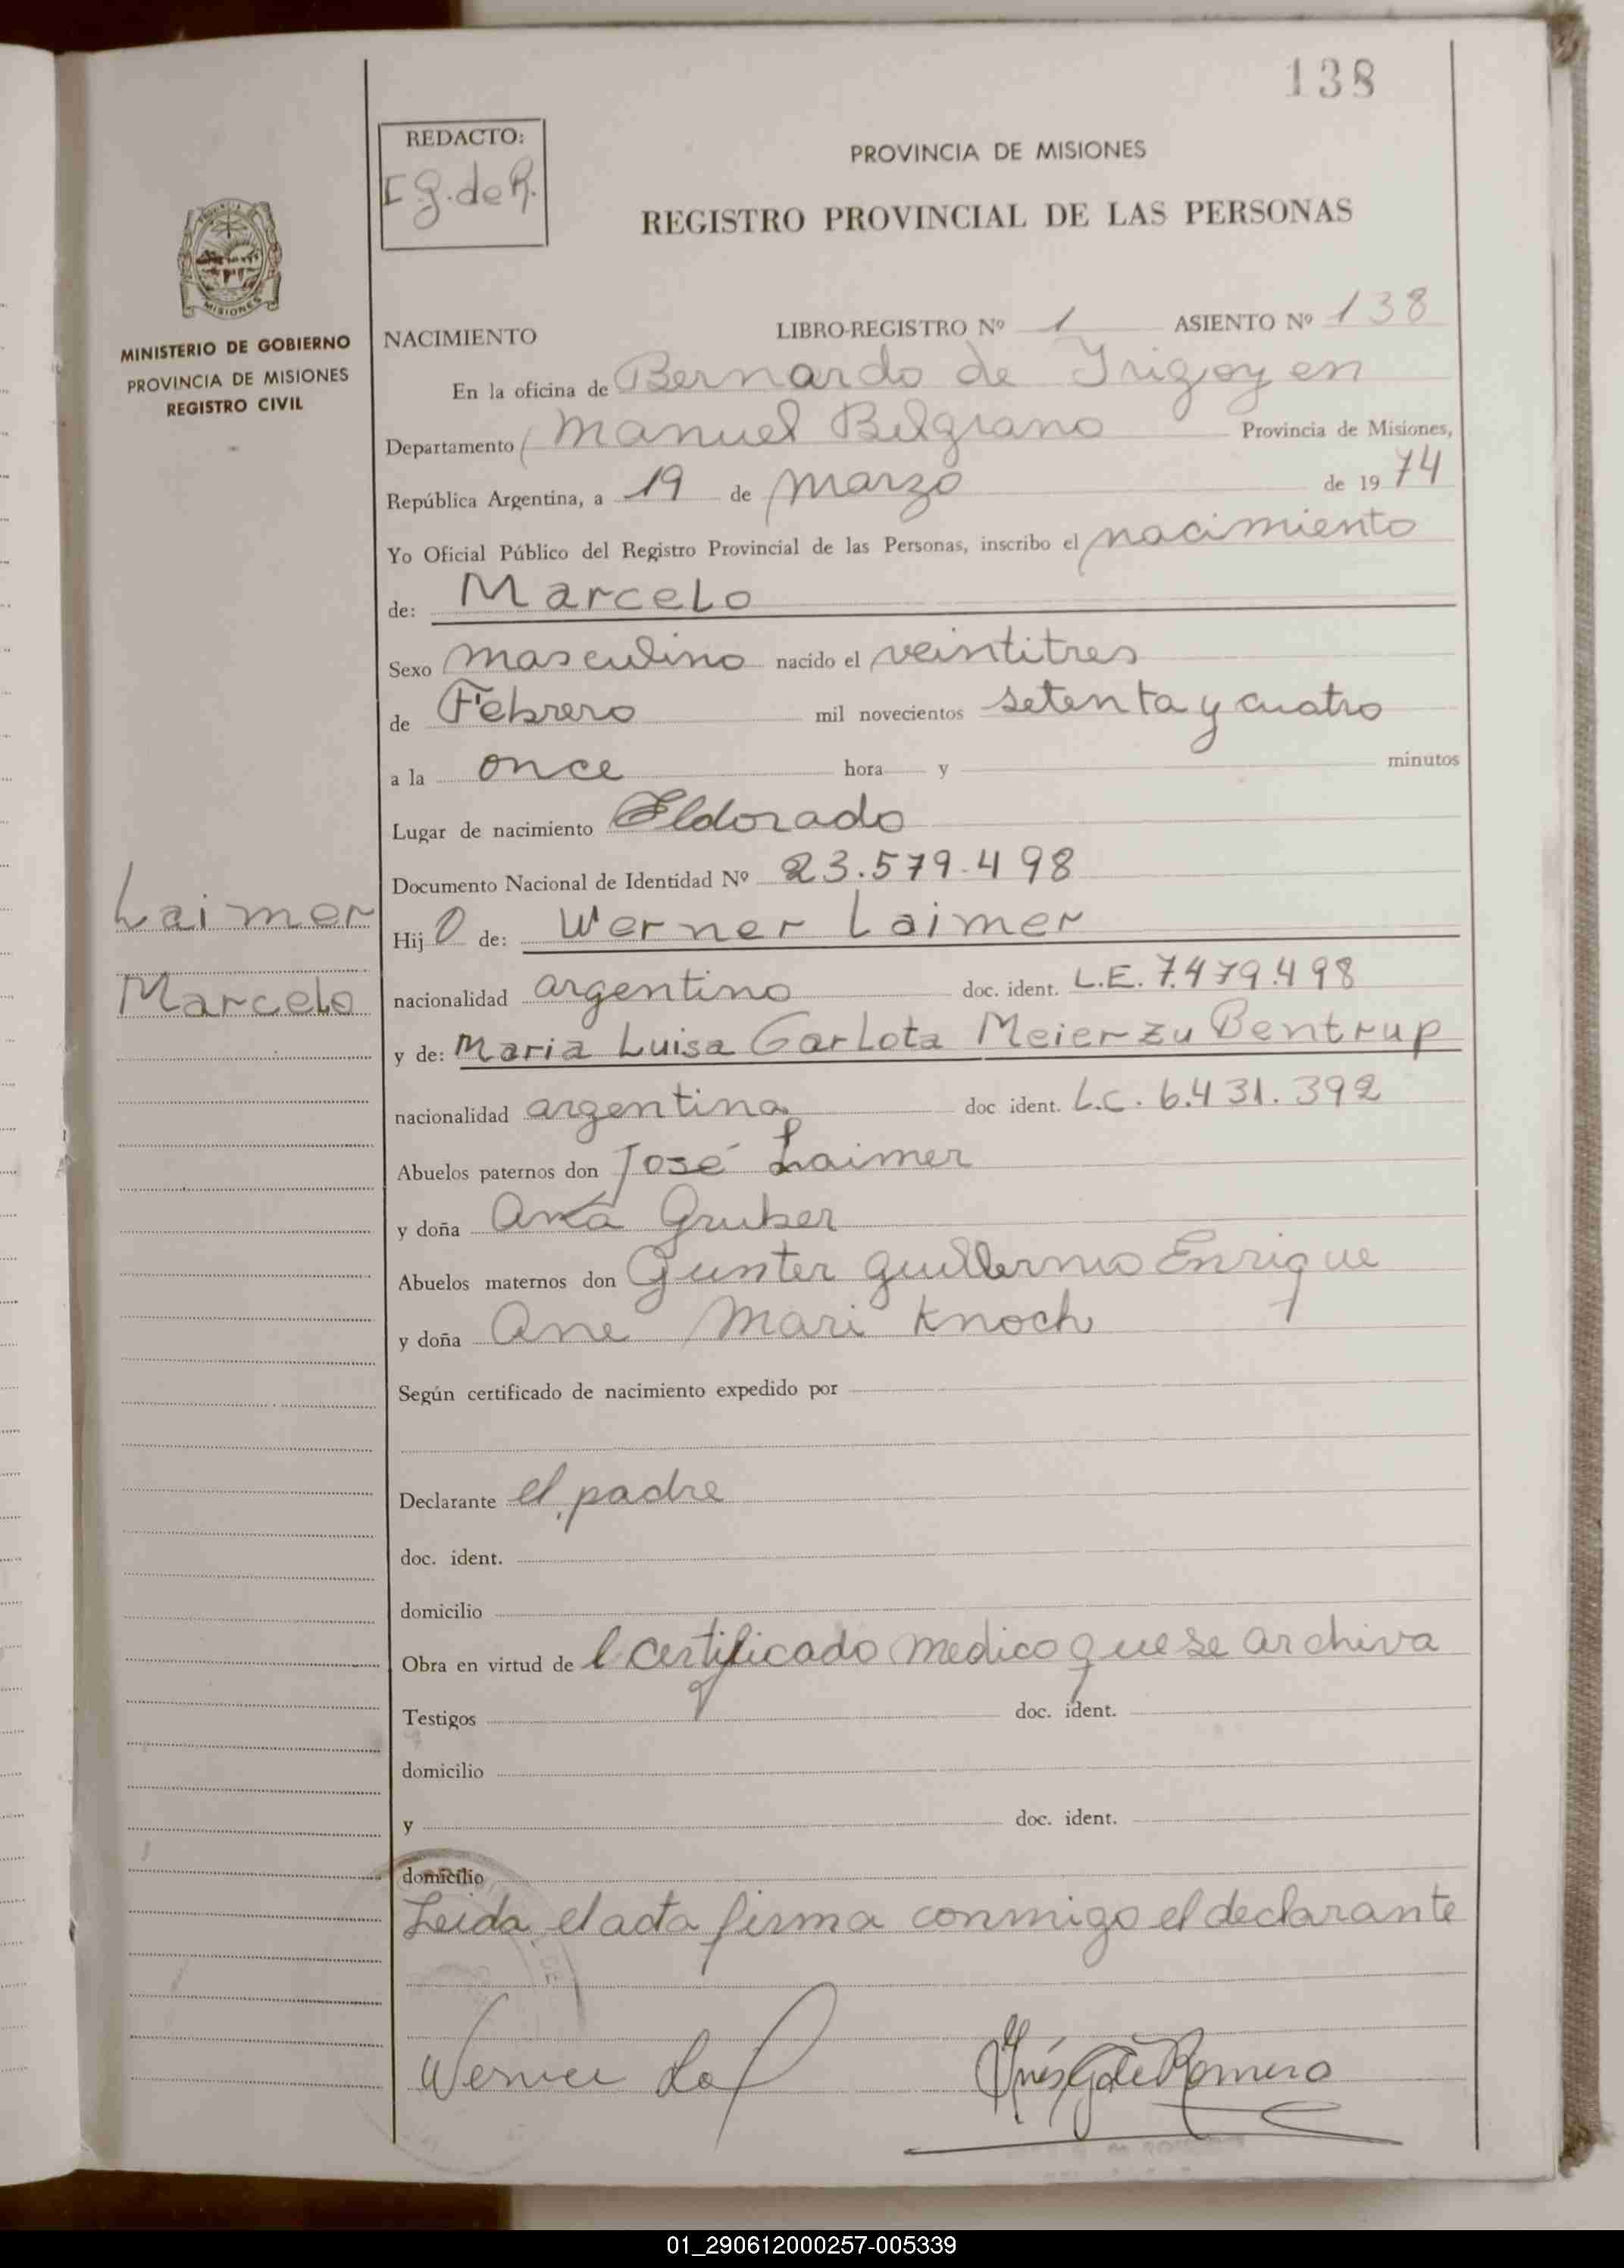 138
REDACTO:
I G. de R.
PROVINCIA DE MISIONES
REGISTRO PROVINCIAL DE LAS PERSONAS
MISIONES
MINISTERIO DE GOBIERNO
PROVINCIA DE MISIONES
REGISTRO CIVIL
NACIMIENTO LIBRO-REGISTRO Nº 1 ASIENTO Nº 138
En la oficina de Bernardo de Irigoyen
Departamento Manuel Belgrano Provincia de Misiones,
República Argentina, a 19 de marzo de 1974
Yo Oficial Público del Registro Provincial de las Personas, inscribo el nacimiento
de: Marcelo
Sexo masculino nacido el veintitres
de Febrero mil novecientos setenta y cuatro
a la once hora y minutos
Lugar de nacimiento Eldorado
Documento Nacional de Identidad Nº 23.579.498
Laimer
Hijo de: Werner Laimer
Marcelo
nacionalidad argentino doc. ident. L.E. 7.479.498
y de: Maria Luisa Carlota Meier zu Bentrup
nacionalidad argentina doc ident. L.C. 6.431.392
Abuelos paternos don José Laimer
y doña Ana Gruber
Abuelos maternos don Gunter Guillermo Enrique
y doña Ane Mari Knoch
Según certificado de nacimiento expedido por
Declarante el padre
doc. ident.
domicilio
Obra en virtud de l certificado medico que se archiva
Testigos doc. ident.
domicilio
y doc. ident.
domicilio
Leida el acta firma conmigo el declarante
Werner
Inés G de Romero
01_290612000257-005339